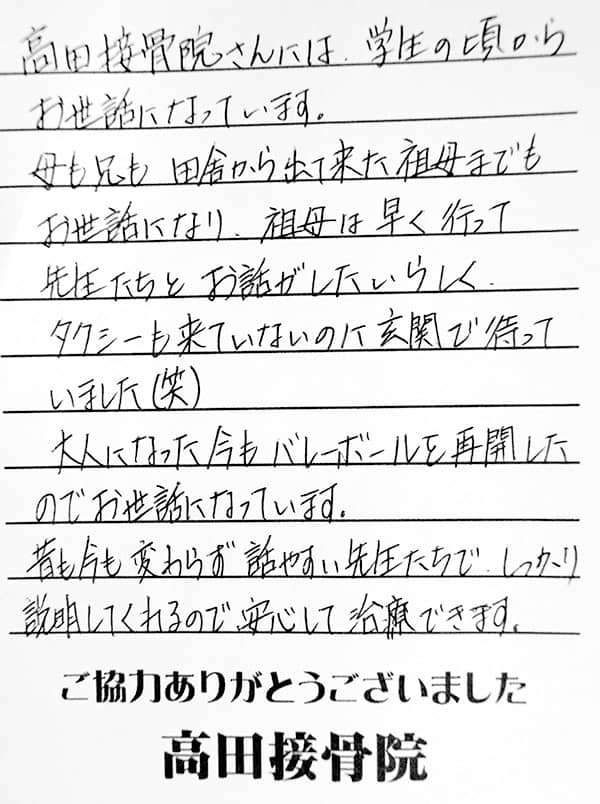 高田接骨院さんには、学生の頃から
お世話になっています。
母も兄も 田舎から出て来た祖母までも
お世話になり、祖母は早く行って
先生たちと お話がしたいらしく、
タクシーも来ていないのに玄関で待って
いました(笑)
大人になった今もバレーボールを再開した
のでお世話になっています。
昔も今も変わらず話やすい先生たちで、しっかり
説明してくれるので、安心して治療できます。
ご協力ありがとうございました
高田接骨院